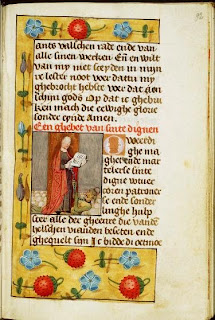 ants valschen rade ende van
alle sinen wercken En̄ en wilt
van my niet sceyden in mijnre
lester noot voer dattu my
ghebrocht hebste voer dat aen
schijn gods Op dat ic ghebru
ken mach die ewighe glorie
sonder eynde Amen
Een ghebet van sinte dignen
O
ghe ma
ghet ende mar
telersse sinte
digne wiver
coren patroner
se ende sonder
linghe hulp
ster alle der gheenre die vand
helschen vianden beseten ende
ghequelt sijn Ic bidde di oetmoe